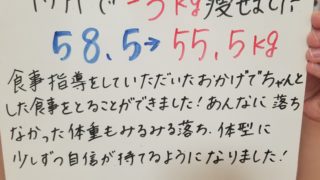 で -3kg 痩せました
58.5→55.5kg
食事指導をしていただいたおかげでちゃんと
した食事をとることができました!あんなに落ち
なかった体重もみるみる落ち、体型に
少しずつ自信が持てるようになりました!